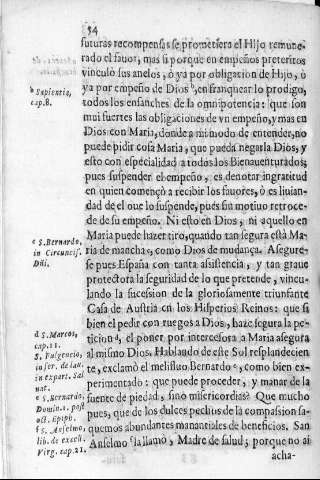 54
futuras recompensas se prometiera el Hijo remune-
rado el fauor, mas si porque en empeños preteritos
vinculò sus anelos, ò ya por obligacion de Hijo, ò
ya por empeño de Dios b, en franquear lo prodigo,
todos los ensanches de la omnipotencia: que son
mui fuertes las obligaciones de vn empeño, y mas en
Dios con Maria, donde a mi modo de entender, no
puede pidir cosa Maria, que pueda negarla Dios, y
esto con especialidad a todos los Bienauenturados;
pues suspender el empeño, es denotar ingratitud
en quien començò a recibir los fauores, ò es liuian-
dad de el que lo suspende, pues sin motiuo retroce-
de de su empeño. Ni esto en Dios, ni aquello en
Maria puede hazer tiro, quando tan segura està Ma-
ria de mancha c, como Dios de mudança. Asegure-
se pues España con tanta asistencia, y tan graue
protectora la seguridad de lo que pretende, vincu-
lando la sucession de la gloriosamente triunfante
Casa de Austria en los Hisperios Reinos: que si
bien el pedir con ruegos a Dios, haze segura la pe-
ticion d, el poner por intercesora a Maria asegura
al mismo Dios. Hablando de este Sol resplandecien-
te, exclamò el melifluo Bernardo e, como bien ex-
perimentado: que puede proceder, y manar de la
fuente de piedad, sino misericordias? Que mucho
pues, que de los dulces pechos de la compasion sa-
quemos abundantes manantiales de beneficios. San
Anselmo f la llamò, Madre de salud; porque no ai
acha-
b Sapientia,
cap. 8.
c S. Bernardo,
in Circuncis.
Dñi.
d S. Marcos,
cap. 11.
S. Fulgencio,
in ser. de lau.
in expart. Sal
nat.
e S. Bernardo,
Domin. 1. post
oct. Epiph.
f S. Anselmo,
lib. de excell.
Virg. cap. 21.